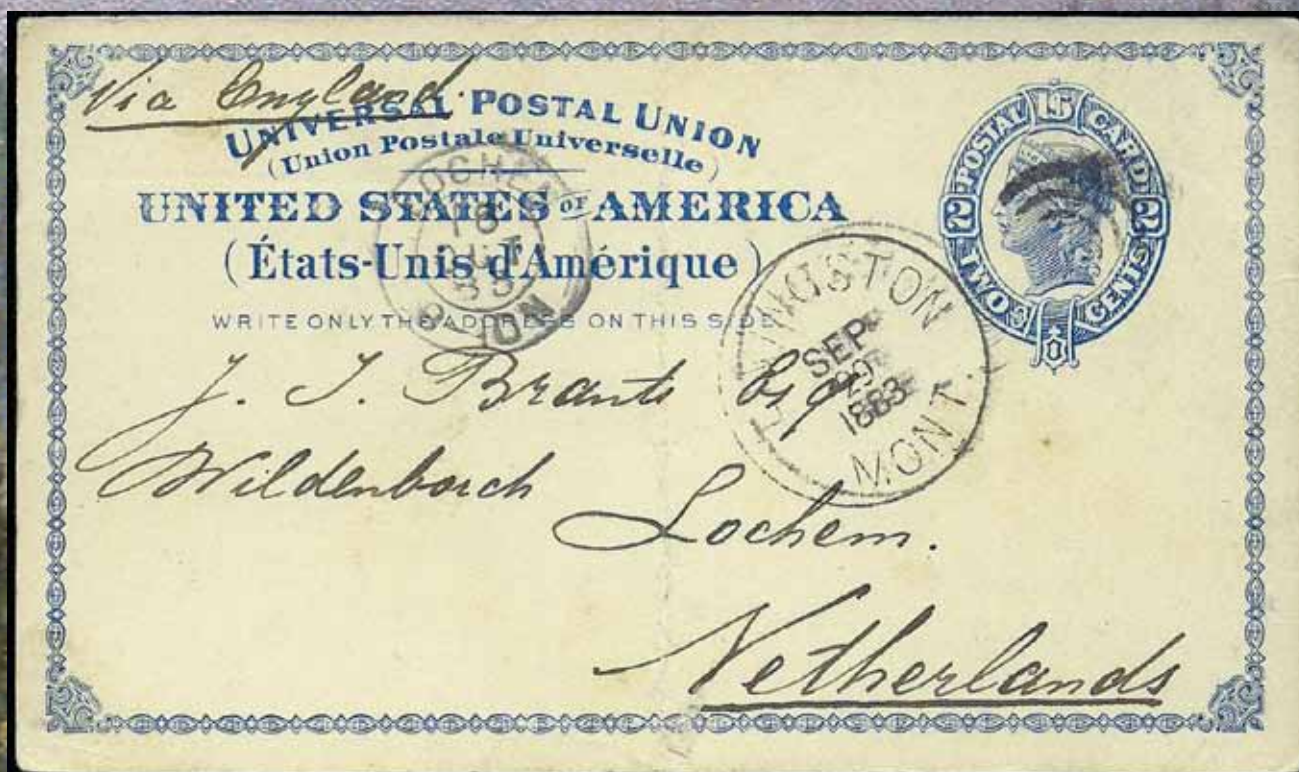 Via England.
UNIVERSAL POSTAL UNION
(Union Postale Universelle)
UNITED STATES OF AMERICA
(États-Unis d'Amérique)
WRITE ONLY THE ADDRESS ON THIS SIDE
POSTAL CARD
U.S.
2 2
TWO CENTS
LOCHEM
16
OCT
83
LIVINGSTON
SEP
29
1883
MONT.
J. J. Brants Esqr
Wildenborch
Lochem.
Netherlands